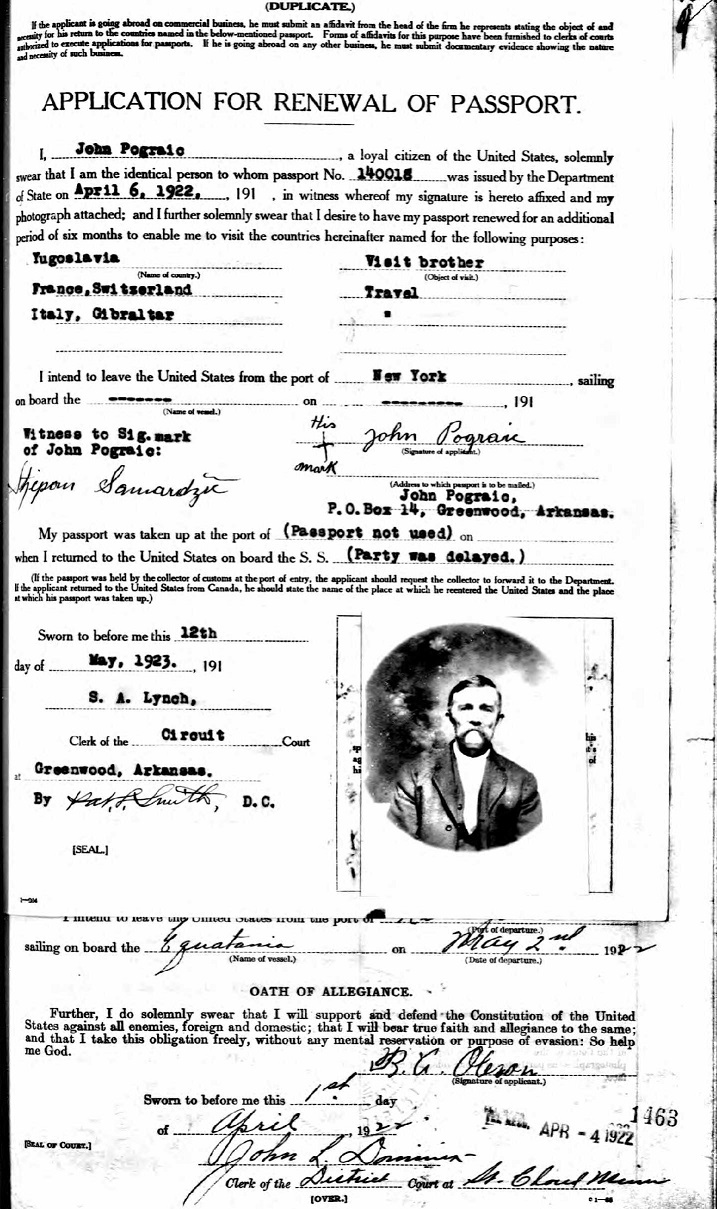 (DUPLICATE.)
If the applicant is going abroad on commercial business, he must submit an affidavit from the head of the firm he represents stating the object of and
necessity for his return to the countries named in the below-mentioned passport. Forms of affidavits for this purpose have been furnished to clerks of courts
authorized to execute applications for passports. If he is going abroad on any other business, he must submit documentary evidence showing the nature
and necessity of such business.
APPLICATION FOR RENEWAL OF PASSPORT.
I, John Pograic, a loyal citizen of the United States, solemnly
swear that I am the identical person to whom passport No. 140018 was issued by the Department
of State on April 6, 1922, , 191 , in witness whereof my signature is hereto affixed and my
photograph attached; and I further solemnly swear that I desire to have my passport renewed for an additional
period of six months to enable me to visit the countries hereinafter named for the following purposes:
Yugoslavia Visit brother
(Name of country.) (Object of visit.)
France,Switzerland Travel
Italy, Gibraltar "
I intend to leave the United States from the port of New York, sailing
on board the ------- on ---------, 191
(Name of vessel.)
His
Witness to Sig.mark John Pograic
of John Pograic: (Signature of applicant.)
mark
Stjepan Samardzic (Address to which passport is to be mailed.)
John Pograic,
P.O.Box 14, Greenwood, Arkansas.
My passport was taken up at the port of (Passport not used) on
when I returned to the United States on board the S. S. (Party was delayed.)
(If the passport was held by the collector of customs at the port of entry, the applicant should request the collector to forward it to the Department.
If the applicant returned to the United States from Canada, he should state the name of the place at which he reentered the United States and the place
at which his passport was taken up.)
Sworn to before me this 12th
day of May, 1923. , 191
S. A. Lynch,
Clerk of the Circuit Court
at Greenwood, Arkansas.
By Smith, D.C.
[SEAL.]
I intend to leave the United States from the port of
(Port of departure.)
sailing on board the on May 2nd 1922
(Name of vessel.) (Date of departure.)
OATH OF ALLEGIANCE.
Further, I do solemnly swear that I will support and defend the Constitution of the United
States against all enemies, foreign and domestic; that I will bear true faith and allegiance to the same;
and that I take this obligation freely, without any mental reservation or purpose of evasion: So help
me God.
Oleson
(Signature of applicant.)
Sworn to before me this 1st day
of April 1922
APR - 4 1922
1463
[SEAL OF COURT.] John L.
Clerk of the District Court at St. Cloud Minn
[OVER.]